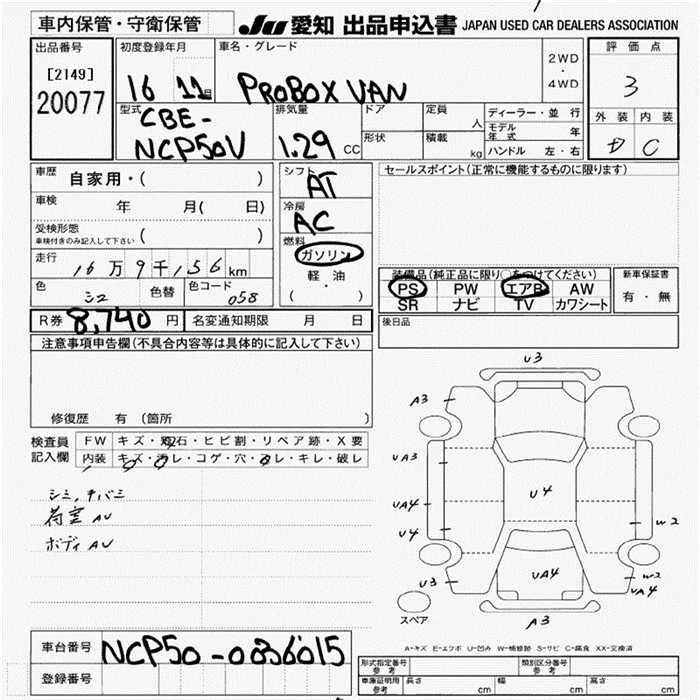 車内保管・守衛保管 JU 愛知 出品申込書 JAPAN USED CAR DEALERS ASSOCIATION
出品番号
[2149]
20077
初度登録年月
16 11月
車名・グレード
PROBOX VAN
2WD
・
4WD
評価点
3
外装 内装
D C
型式
CBE-
NCP50V
排気量
1.29 CC
ドア
形状
定員 人
積載 kg
ディーラー・並行
モデル年式 年
ハンドル 左・右
車歴 自家用・( )
車検 年 月( 日)
受検形態
車検付きのみ記入して下さい ( )
走行 16万9千156km
色 シロ 色替 色コード 058
シフト
AT
冷房
AC
燃料
ガソリン
軽・油
( ・ )
セールスポイント(正常に機能するものに限ります)
装備品(純正品に限り○をつけてください)
PS PW エアB AW
SR ナビ TV カワシート
新車保証書
有・無
後日品
R券 8,740 円 名変通知期限 月 日
注意事項申告欄(不具合内容等は具体的に記入して下さい)
修復歴 有 (箇所 )
検査員記入欄
FW キズ・飛石・ヒビ割・リペア跡・X要
内装 キズ・汚レ・コゲ・穴・ヌレ・キレ・破レ
シミ,チバミ
荷室 AU
ボディ AU
U3
A3
UA3
UA4
U4
U4
U3
UA4
W2
W2
UA4
A3
スペア
A-キズ E-エクボ U-凹み W-補修跡 S-サビ C-腐食 XX-交換済
車台番号 NCP50-0036015
登録番号
形式指定番号 参考
類別区分番号 参考
車庫証明用 参考 長さ cm 幅 cm 高さ cm